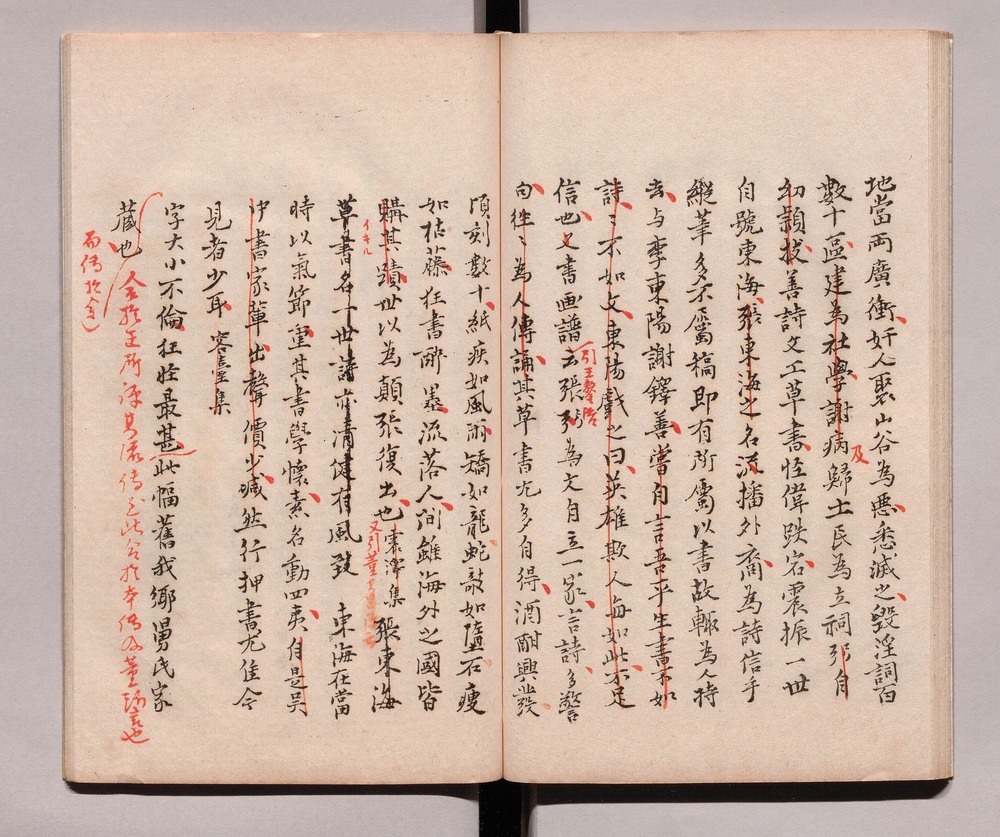 地當両廣衝奸人聚山谷為悪悉滅之毀淫祠百
數十區建為社學謝病歸土民為立祠弼自
及
幼頴拔善詩文工草書怪偉跌宕震振一世
自號東海張東海之名流播外裔為詩信手
縦筆多不屬稿即有所屬以書故輙為人持
去与李東陽謝鐸善嘗自言吾平生書不如
詩詩不如文東陽戯之曰英雄欺人毎如此不足
信也又書画譜云張弼為文自立一家言詩多警
句徃〻為人傳誦其草書尤多自得酒酣興發
頃刻數十紙疾如風雨矯如龍蛇欹如墮石瘦
如枯藤狂書醉墨流落人间雖海外之國皆
購其蹟世以為顛張復出也 震澤集 張東海
イキル
草書名一世詩亦清健有風致 東海在當
時以氣節重其書學懐素名動四夷自是吴
中書家軰出聲價少減然行押書尤佳今
見者少耳 容臺集
字大小不倫狂怪最甚此幅舊我郷舅氏家
蔵也